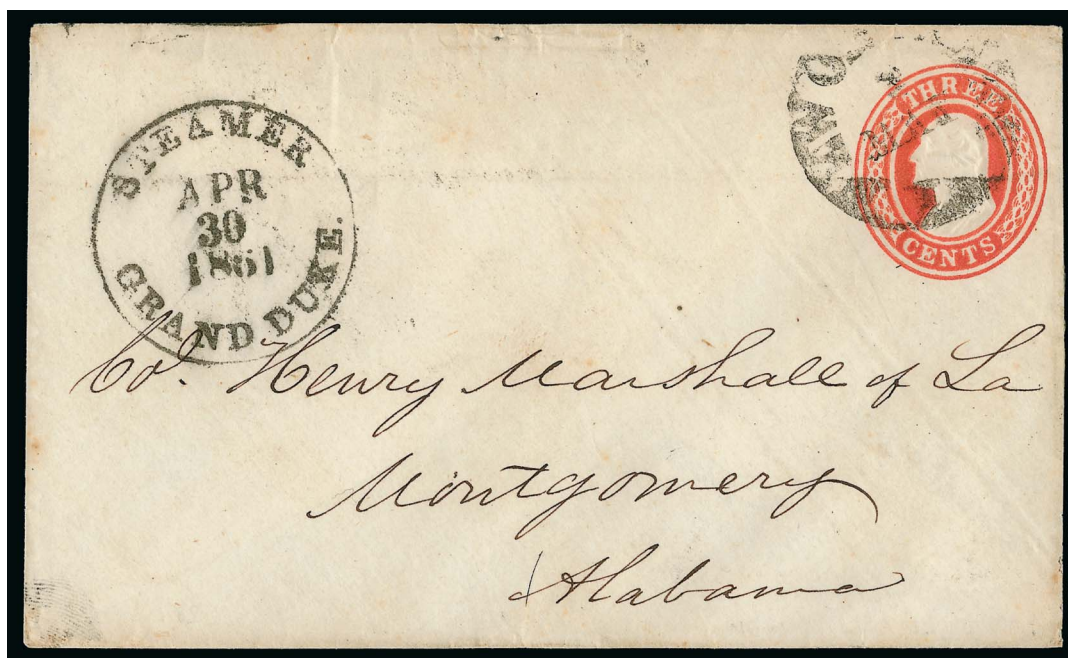 STEAMER
APR
30
1861
GRAND DUKE.
THREE
CENTS
Col. Henry Marshall of La
Montgomery
Alabama